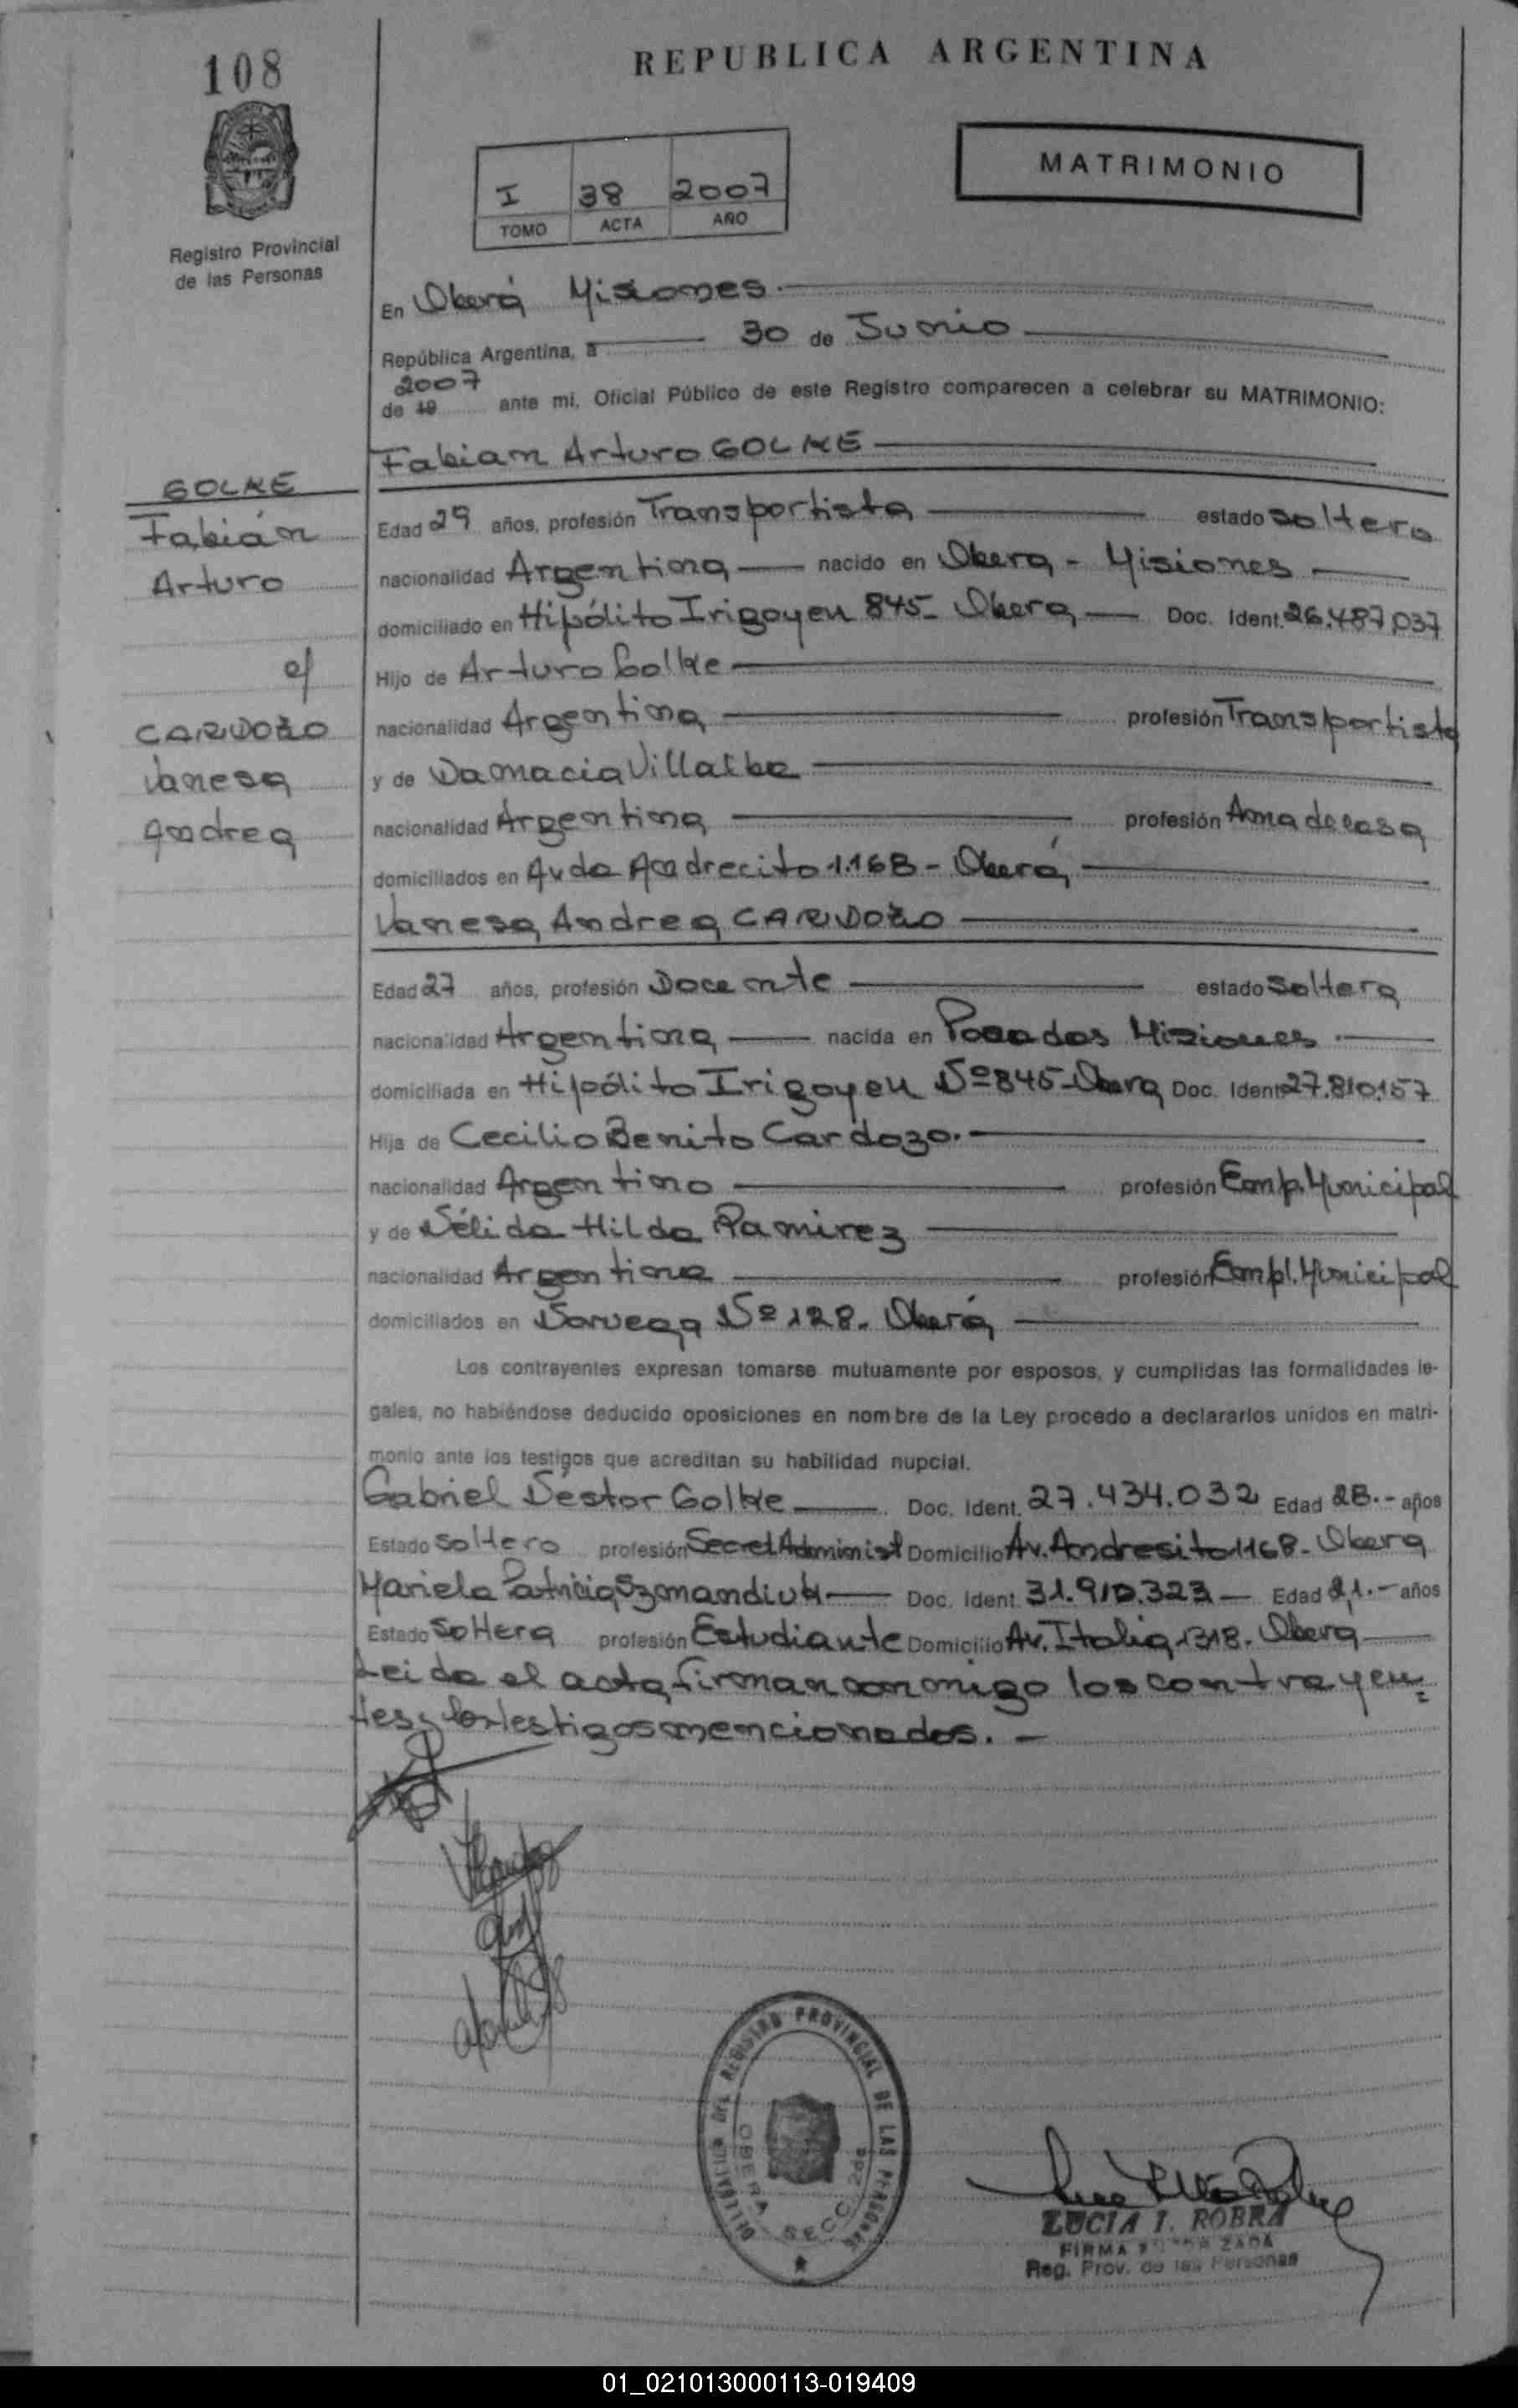 108
REPUBLICA ARGENTINA
I 38 2007
TOMO ACTA AÑO
MATRIMONIO
Registro Provincial
de las Personas
En Oberá Misiones.
República Argentina, a 30 de Junio
2007
de 19 ante mi, Oficial Público de este Registro comparecen a celebrar su MATRIMONIO:
Fabian Arturo GOLKE
GOLKE
Fabián
Arturo
c/
CARDOZO
Vanesa
Andrea
Edad 29 años, profesión Transportista estado Soltero
nacionalidad Argentina nacido en Obera - Misiones
domiciliado en Hipólito Irigoyen 845- Obera Doc. Ident. 26.487.037
Hijo de Arturo Golke
nacionalidad Argentina profesión Transportista
y de Damacia Villalba
nacionalidad Argentina profesión Ama de casa
domiciliados en Avda Andrecito 1.168 - Oberá
Vanesa Andrea CARDOZO
Edad 27 años, profesión Docente estado Soltera
nacionalidad Argentina nacida en Posadas Misiones
domiciliada en Hipólito Irigoyen Nº 845-Obera Doc. Ident. 27.810.157
Hija de Cecilio Benito Cardozo.
nacionalidad Argentino profesión Emp. Municipal
y de Nélida Hilda Ramirez
nacionalidad Argentina profesión Empl. Municipal
domiciliados en Noruega Nº 128. Oberá
Los contrayentes expresan tomarse mutuamente por esposos, y cumplidas las formalidades le-
gales, no habiéndose deducido oposiciones en nombre de la Ley procedo a declararlos unidos en matri-
monio ante los testigos que acreditan su habilidad nupcial.
Gabriel Nestor Golke Doc. Ident. 27.434.032 Edad 28.- años
Estado Soltero profesión Secret Administ Domicilio Av. Andresito 1168- Obera
Mariela Patricia Szmandiuk Doc. Ident. 31.910.323 Edad 21.- años
Estado Soltera profesión Estudiante Domicilio Av. Italia 1318. Obera
Leida el acta firman conmigo los contrayen=
tes y los testigos mencionados. -
DELEGACION DEL REGISTRO PROVINCIAL DE LAS PERSONAS
OBERA SECC. 2da
LUCIA I. ROBRA
FIRMA AUTORIZADA
Reg. Prov. de las Personas
01_021013000113-019409